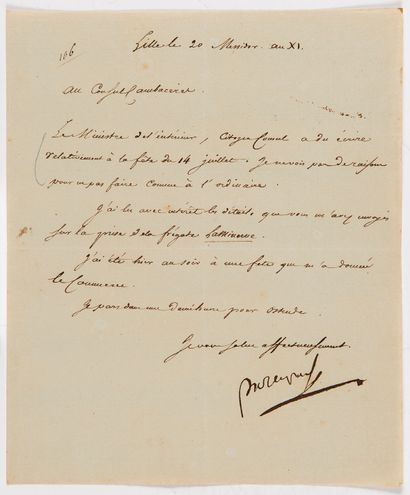 106
Lille le 20 Messidor. an XI.
au Consul Cambacérès.
Le Ministre de l'intérieur, Citoyen Consul a du écrire
relativement à la fête du 14 juillet. Je ne vois pas de raison
pour ne pas faire comme à l'ordinaire.
J'ai lu avec intérêt les détails que vous m'avez envoyés
sur la prise de la frégate La Minerve.
J'ai été hier au soir à une fête que m'a donnée
le Commerce.
Je pars dans une demiheure pour ostende.
Je vous salue affectueusement.